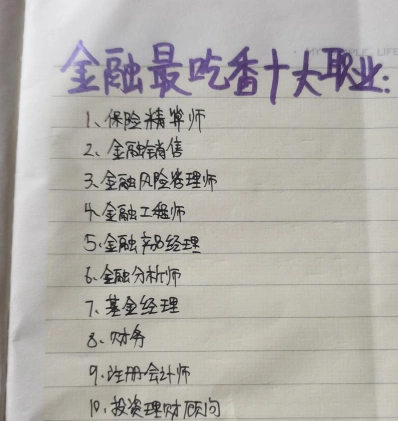 金融最吃香十大职业:
1、保险精算师
2、金融销售
3、金融风险管理师
4、金融工程师
5、金融产品经理
6、金融分析师
7、基金经理
8、财务
9、注册会计师
10、投资理财顾问